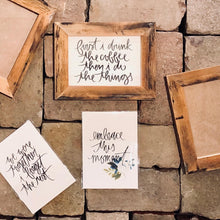 first i drink
the coffee
then i do
the things
embrace
this
moment
we were
together
i forget
the rest